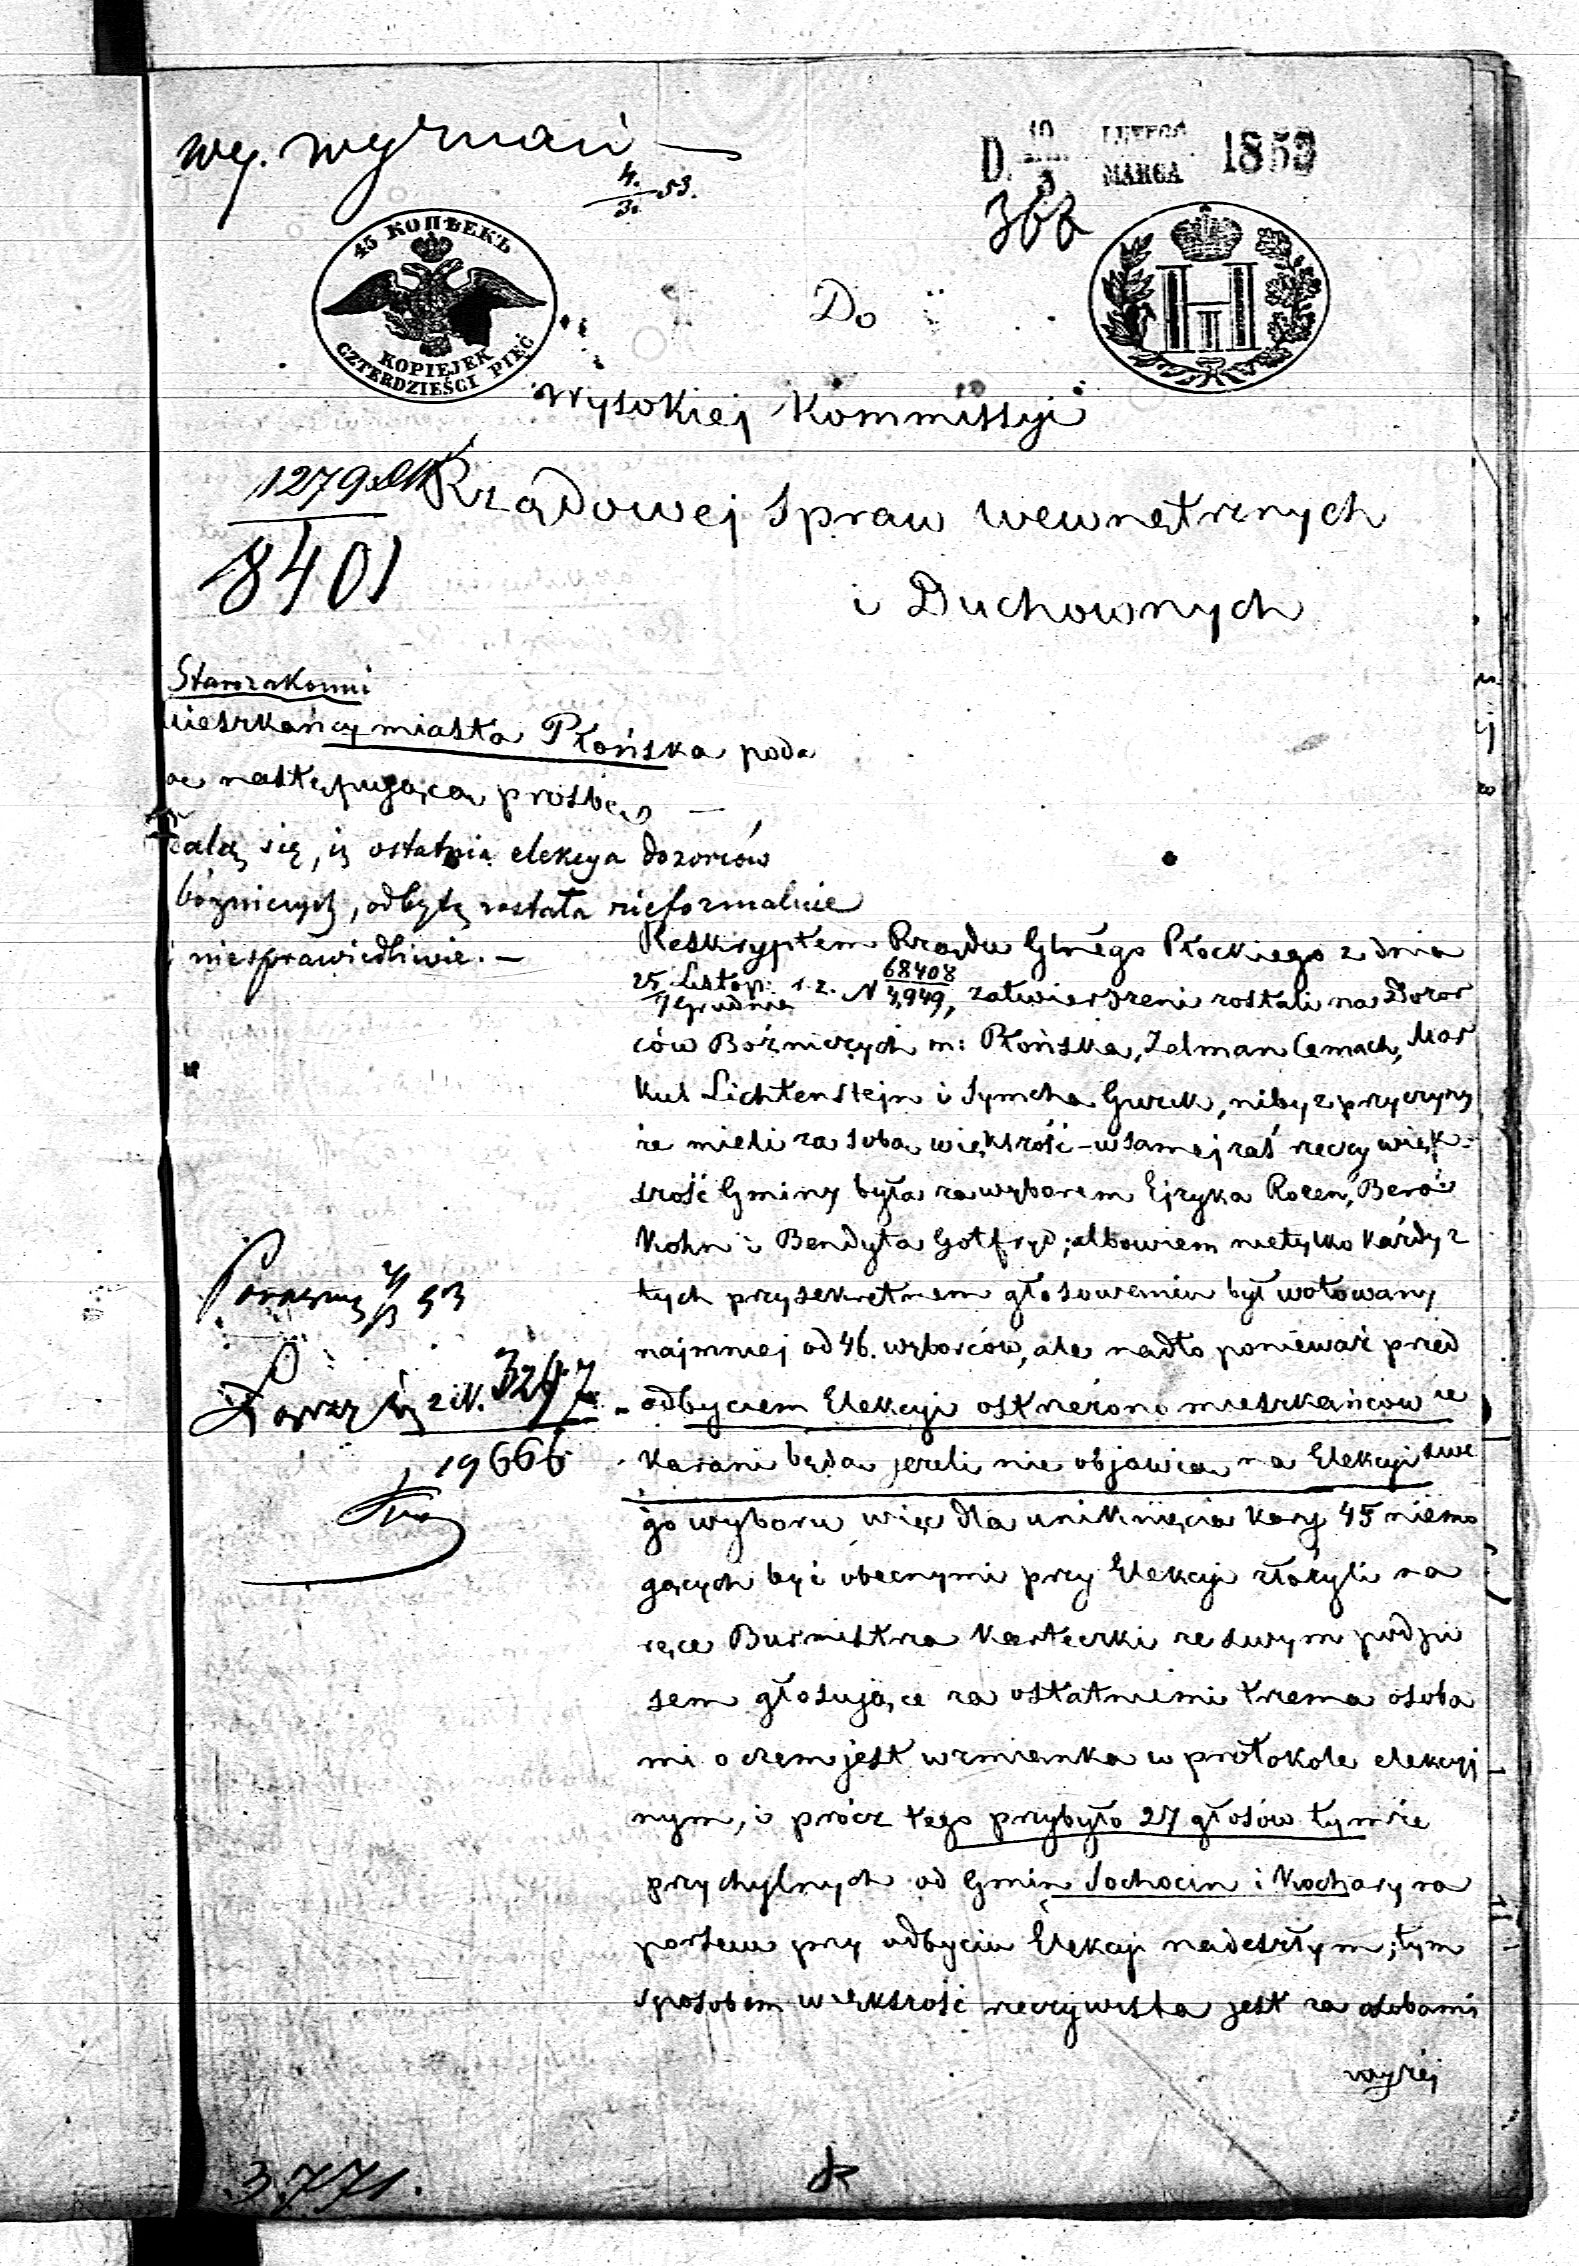 wy. wyznań —
4./3. 53.
D. 19/3 LUTEGO MARCA 1853
45 КОПѢЕКЪ
KOPIEJEK
CZTERDZIEŚCI PIĘĆ
Do
Wysokiej Kommissyi
1279
Rządowej Spraw wewnętrznych
18401
i Duchownych
Starozakonni
mieszkańcy miasta Płońska poda
ą następującą prośbę —
żalą się, iż ostatnia elekcya dozorców
bóżniczych, odbytą została nieformalnie
i niesprawiedliwie. —
Reskryptem Rządu Glnego Płockiego z dnia
25 Listop: / 7 Grudnia r. z. N 68408/4949, zatwierdzeni zostali na Dozor
ców Bóżniczych m: Płońska, Zelman Cemach, Mor
kus Lichtenstejn i Symcha Gurek, niby z przyczyny
że mieli za sobą większość - w samej zaś rzeczy więk-
szość Gminy była za wyborem Ejzyka Rozen, Bera
Kohn i Bendyta Gotfryd; albowiem nietylko każdy z
tych przy sekretnem głosowaniu był wotowany
najmniej od 46. wyborców, ale nadto ponieważ przed
odbyciem Elekcyi ostrzeżono mieszkańców że
karani będą jeżeli nie objawią na Elekcyi swe
go wyboru więc dla uniknięcia kary 45 niemo
gących być obecnymi przy Elekcyi złożyli na
ręce Burmistrza karteczki ze swym podpi
sem głosujące za ostatniemi trzema osoba
mi o czem jest wzmianka w protokole elekcyj
nym, i prócz tego przybyło 27 głosów tymże
przychylnych od Gmin Sochocin i Kochary na
porsew przy odbyciu Elekcyi nadeszłym; tym
sposobem większość rzeczywista jest za osobami
wyżej
z N. 3247
19666
3771.